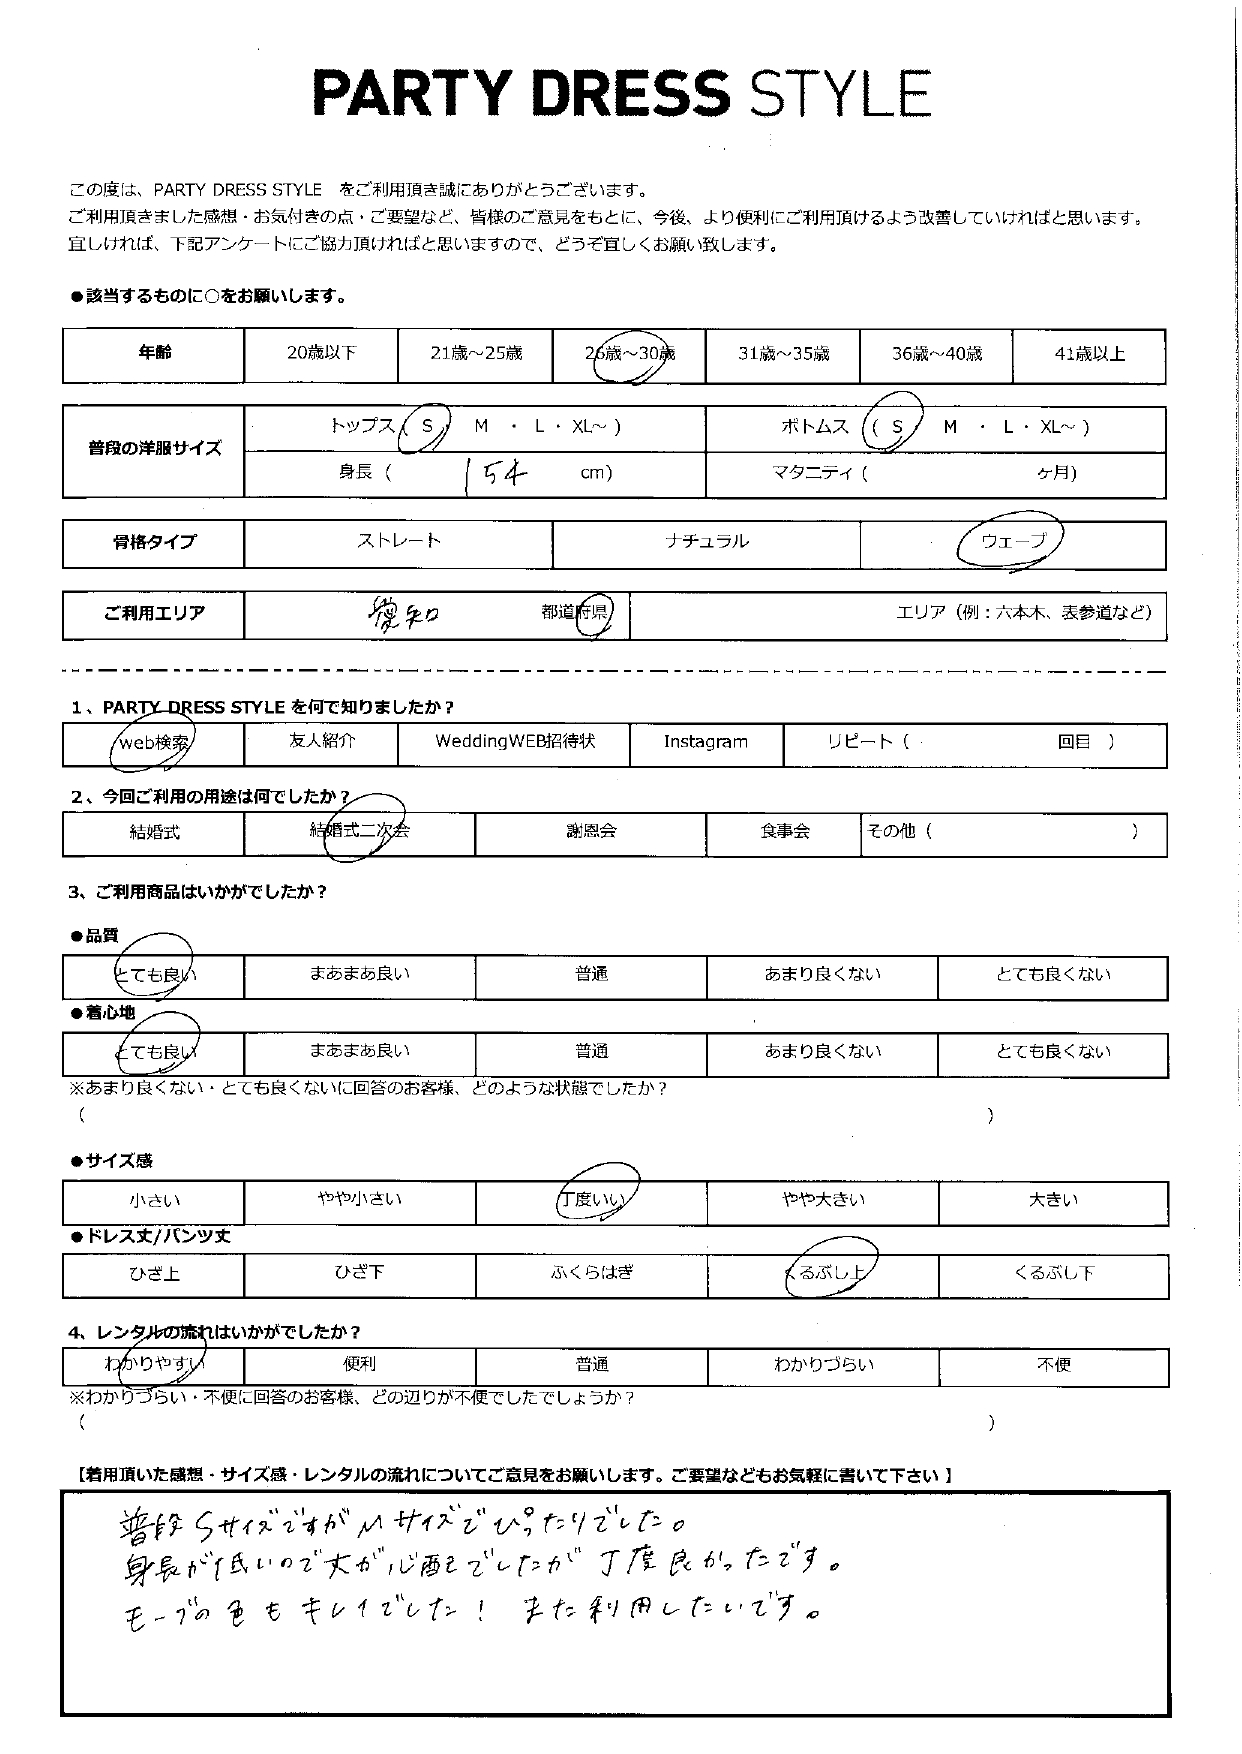 PARTY DRESS STYLE
この度は、PARTY DRESS STYLE をご利用頂き誠にありがとうございます。
ご利用頂きました感想・お気付きの点・ご要望など、皆様のご意見をもとに、今後、より便利にご利用頂けるよう改善していければと思います。
宜しければ、下記アンケートにご協力頂ければと思いますので、どうぞ宜しくお願い致します。
●該当するものに○をお願いします。
年齢 20歳以下 21歳～25歳 26歳～30歳 31歳～35歳 36歳～40歳 41歳以上
普段の洋服サイズ
トップス( S M ・ L ・ XL～ ) ボトムス ( S M ・ L ・ XL～ )
身長 ( 154 cm) マタニティ ( ヶ月)
骨格タイプ ストレート ナチュラル ウェーブ
ご利用エリア 愛知 都道府県 エリア（例：六本木、表参道など）
1、PARTY DRESS STYLE を何で知りましたか？
web検索 友人紹介 WeddingWEB招待状 Instagram リピート（ 回目 ）
2、今回ご利用の用途は何でしたか？
結婚式 結婚式二次会 謝恩会 食事会 その他（ ）
3、ご利用商品はいかがでしたか？
●品質
とても良い まあまあ良い 普通 あまり良くない とても良くない
●着心地
とても良い まあまあ良い 普通 あまり良くない とても良くない
※あまり良くない・とても良くないに回答のお客様、どのような状態でしたか？
（ ）
●サイズ感
小さい やや小さい 丁度いい やや大きい 大きい
●ドレス丈/パンツ丈
ひざ上 ひざ下 ふくらはぎ くるぶし上 くるぶし下
4、レンタルの流れはいかがでしたか？
わかりやすい 便利 普通 わかりづらい 不便
※わかりづらい・不便に回答のお客様、どの辺りが不便でしたでしょうか？
（ ）
【着用頂いた感想・サイズ感・レンタルの流れについてご意見をお願いします。ご要望などもお気軽に書いて下さい】
普段SサイズですがMサイズでぴったりでした。
身長が低いので丈が心配でしたが丁度良かったです。
モーブの色もキレイでした！ また利用したいです。